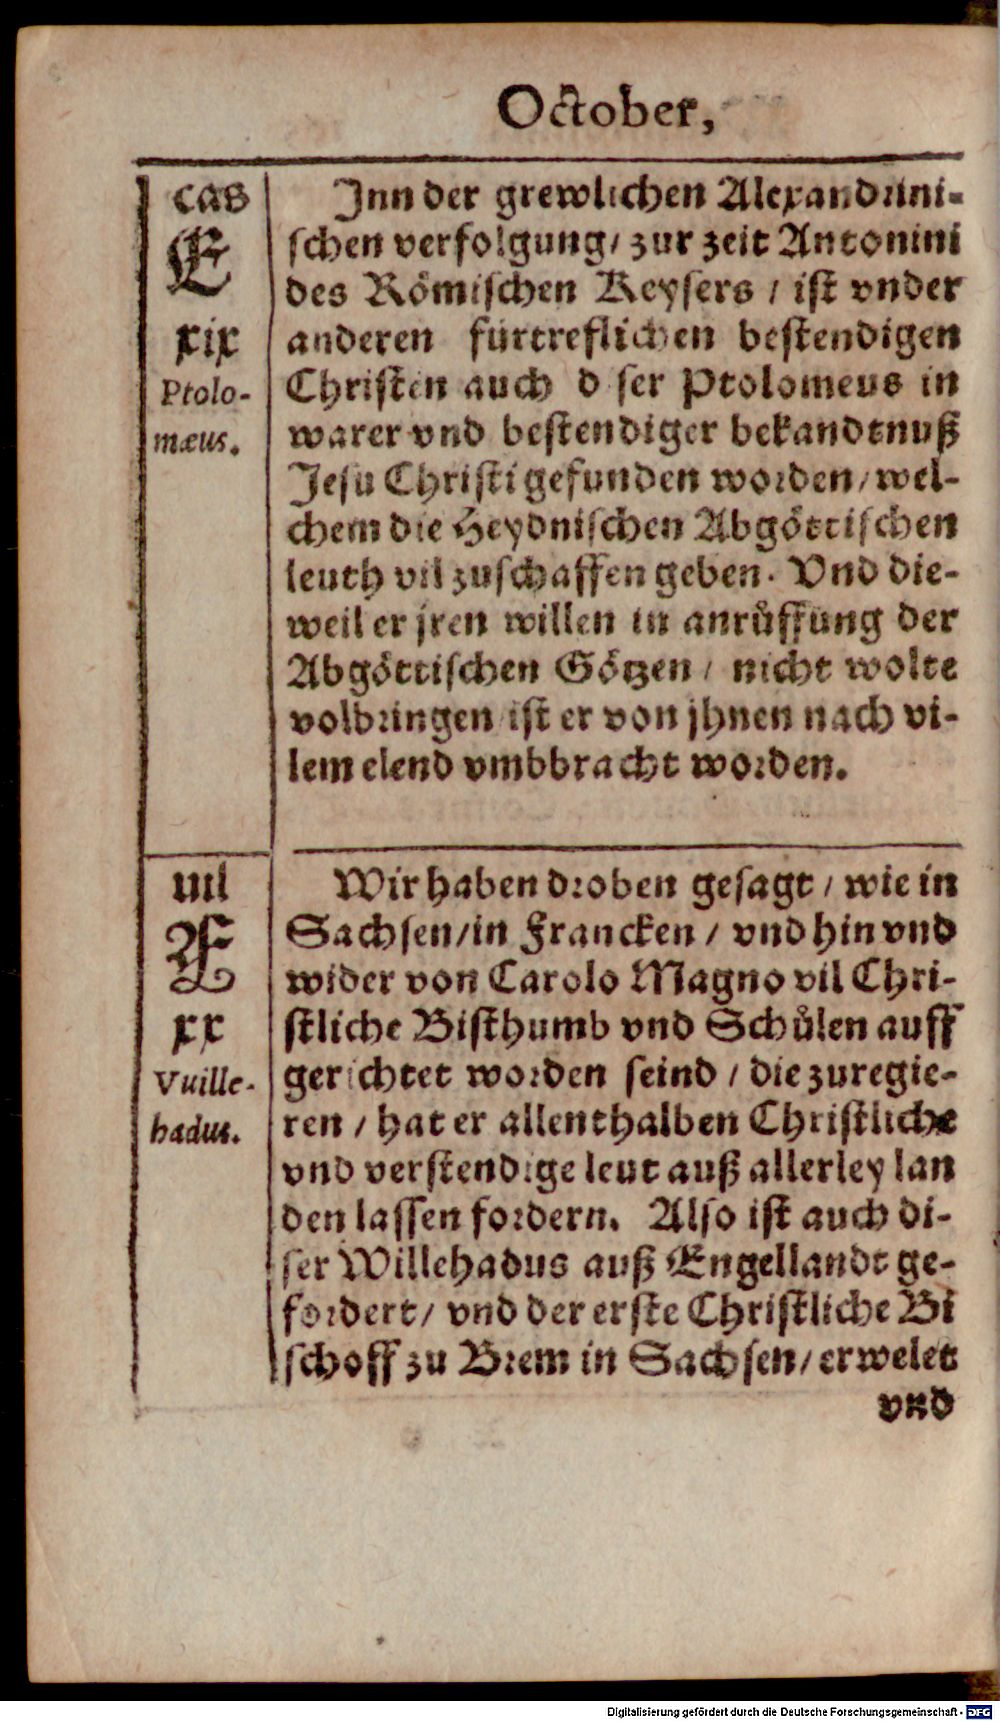 October,
cas
E
xix
Ptolo-
mæus.
Jnn der grewlichen Alexandrini-
schen verfolgung/ zur zeit Antonini
des Römischen Keysers / ist vnder
anderen fürtreflichen bestendigen
Christen auch d ser Ptolomeus in
warer vnd bestendiger bekandtnuß
Jesu Christi gefunden worden/ wel-
chem die Heydnischen Abgöttischen
leuth vil zuschaffen geben. Vnd die-
weil er jren willen in anrůffung der
Abgöttischen Götzen / nicht wolte
volbringen / ist er von jhnen nach vi-
lem elend vmbbracht worden.
iiil
F
xx
Vuille-
hadus.
Wir haben droben gesagt / wie in
Sachsen/in Francken / vnd hin vnd
wider von Carolo Magno vil Chri-
stliche Bisthumb vnd Schůlen auff
gerichtet worden seind / die zuregie-
ren / hat er allenthalben Christliche
vnd verstendige leut auß allerley lan
den lassen fordern. Also ist auch di-
ser Willehadus auß Engellandt ge-
fordert/ vnd der erste Christliche Bi
schoff zu Brem in Sachsen/ erwelet
vnd
Digitalisierung gefördert durch die Deutsche Forschungsgemeinschaft - DFG